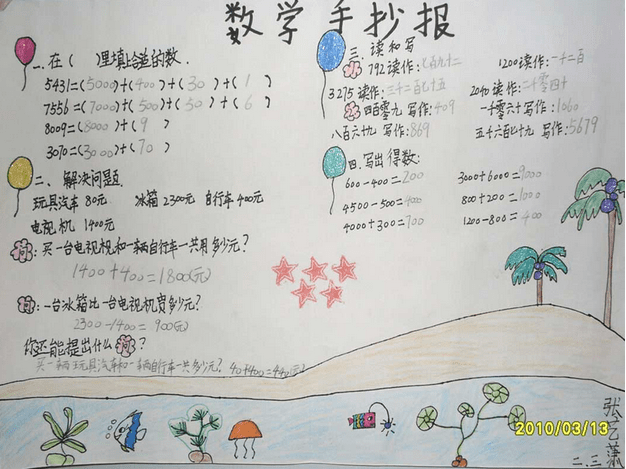 数学手抄报
一.在( )里填上合适的数.
5431=(5000)+(400)+(30)+(1)
7556=(7000)+(500)+(50)+(6)
8009=(8000)+(9)
3070=(3000)+(70)
二、解决问题.
玩具汽车 80元 冰箱 2300元 自行车 400元
电视机 1400元
问:买一台电视机和一辆自行车一共用多少元?
1400+400=1800(元)
问:一台冰箱比一台电视机贵多少元?
2300-1400=900(元)
你还能提出什么问?
买一辆玩具汽车和一辆自行车一共多少元?
三、读和写
792读作:七百九十二 1200读作:一千二百
3275读作:三千二百七十五 2040读作:二千零四十
四百零九 写作:409 一千零六十 写作:1060
八百六十九 写作:869 五千六百七十九 写作:5679
四.写出得数:
600-400=200 3000+6000=9000
4500-500=4000 800+200=1000
4000+300=700 1200-800=400
2010/03/13
二.三